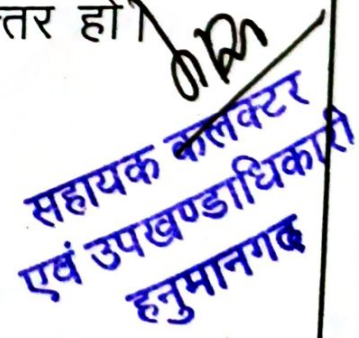 तर हो।
सहायक कलक्टर
एवं उपखण्डाधिकारी
हनुमानगढ